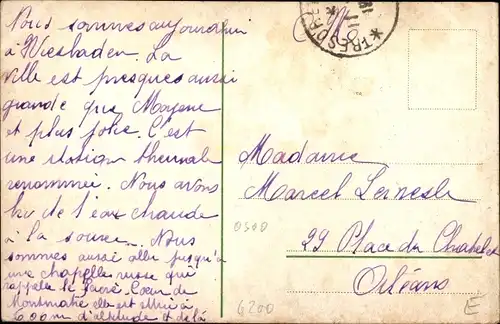 Nous sommes aujourd'hui
à Wiesbaden. La
ville est presque aussi
grande que Mayence
et plus jolie. C'est
une station thermale
renommée. Nous avons
bu de l'eau chaude
à la source. Nous
sommes aussi allés jusqu'à
une chapelle russe qui
rappelle le Sacré Cœur de
Montmartre elle est située à
600m d'altitude et de là
F. M.
* TRESOR
Madame
Marcel
29 Place du Chatelet
Orléans
0300
6200
E